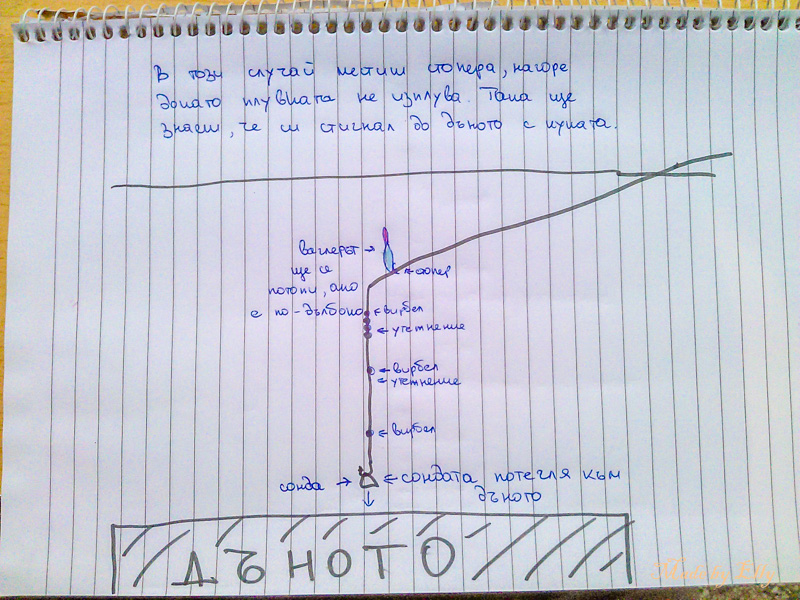 В този случай местиш стопера, нагоре
докато плувката не изплува. Така ще
знаеш, че си стигнал до дъното с куката.
ваглерът →
ще се
потопи, ако
е по-дълбоко
← стопер
← вирбел
← утежнение
← вирбел
← утежнение
← вирбел
сонда →
← сондата потегля към
дъното
ДЪНОТО
Made by Lilly